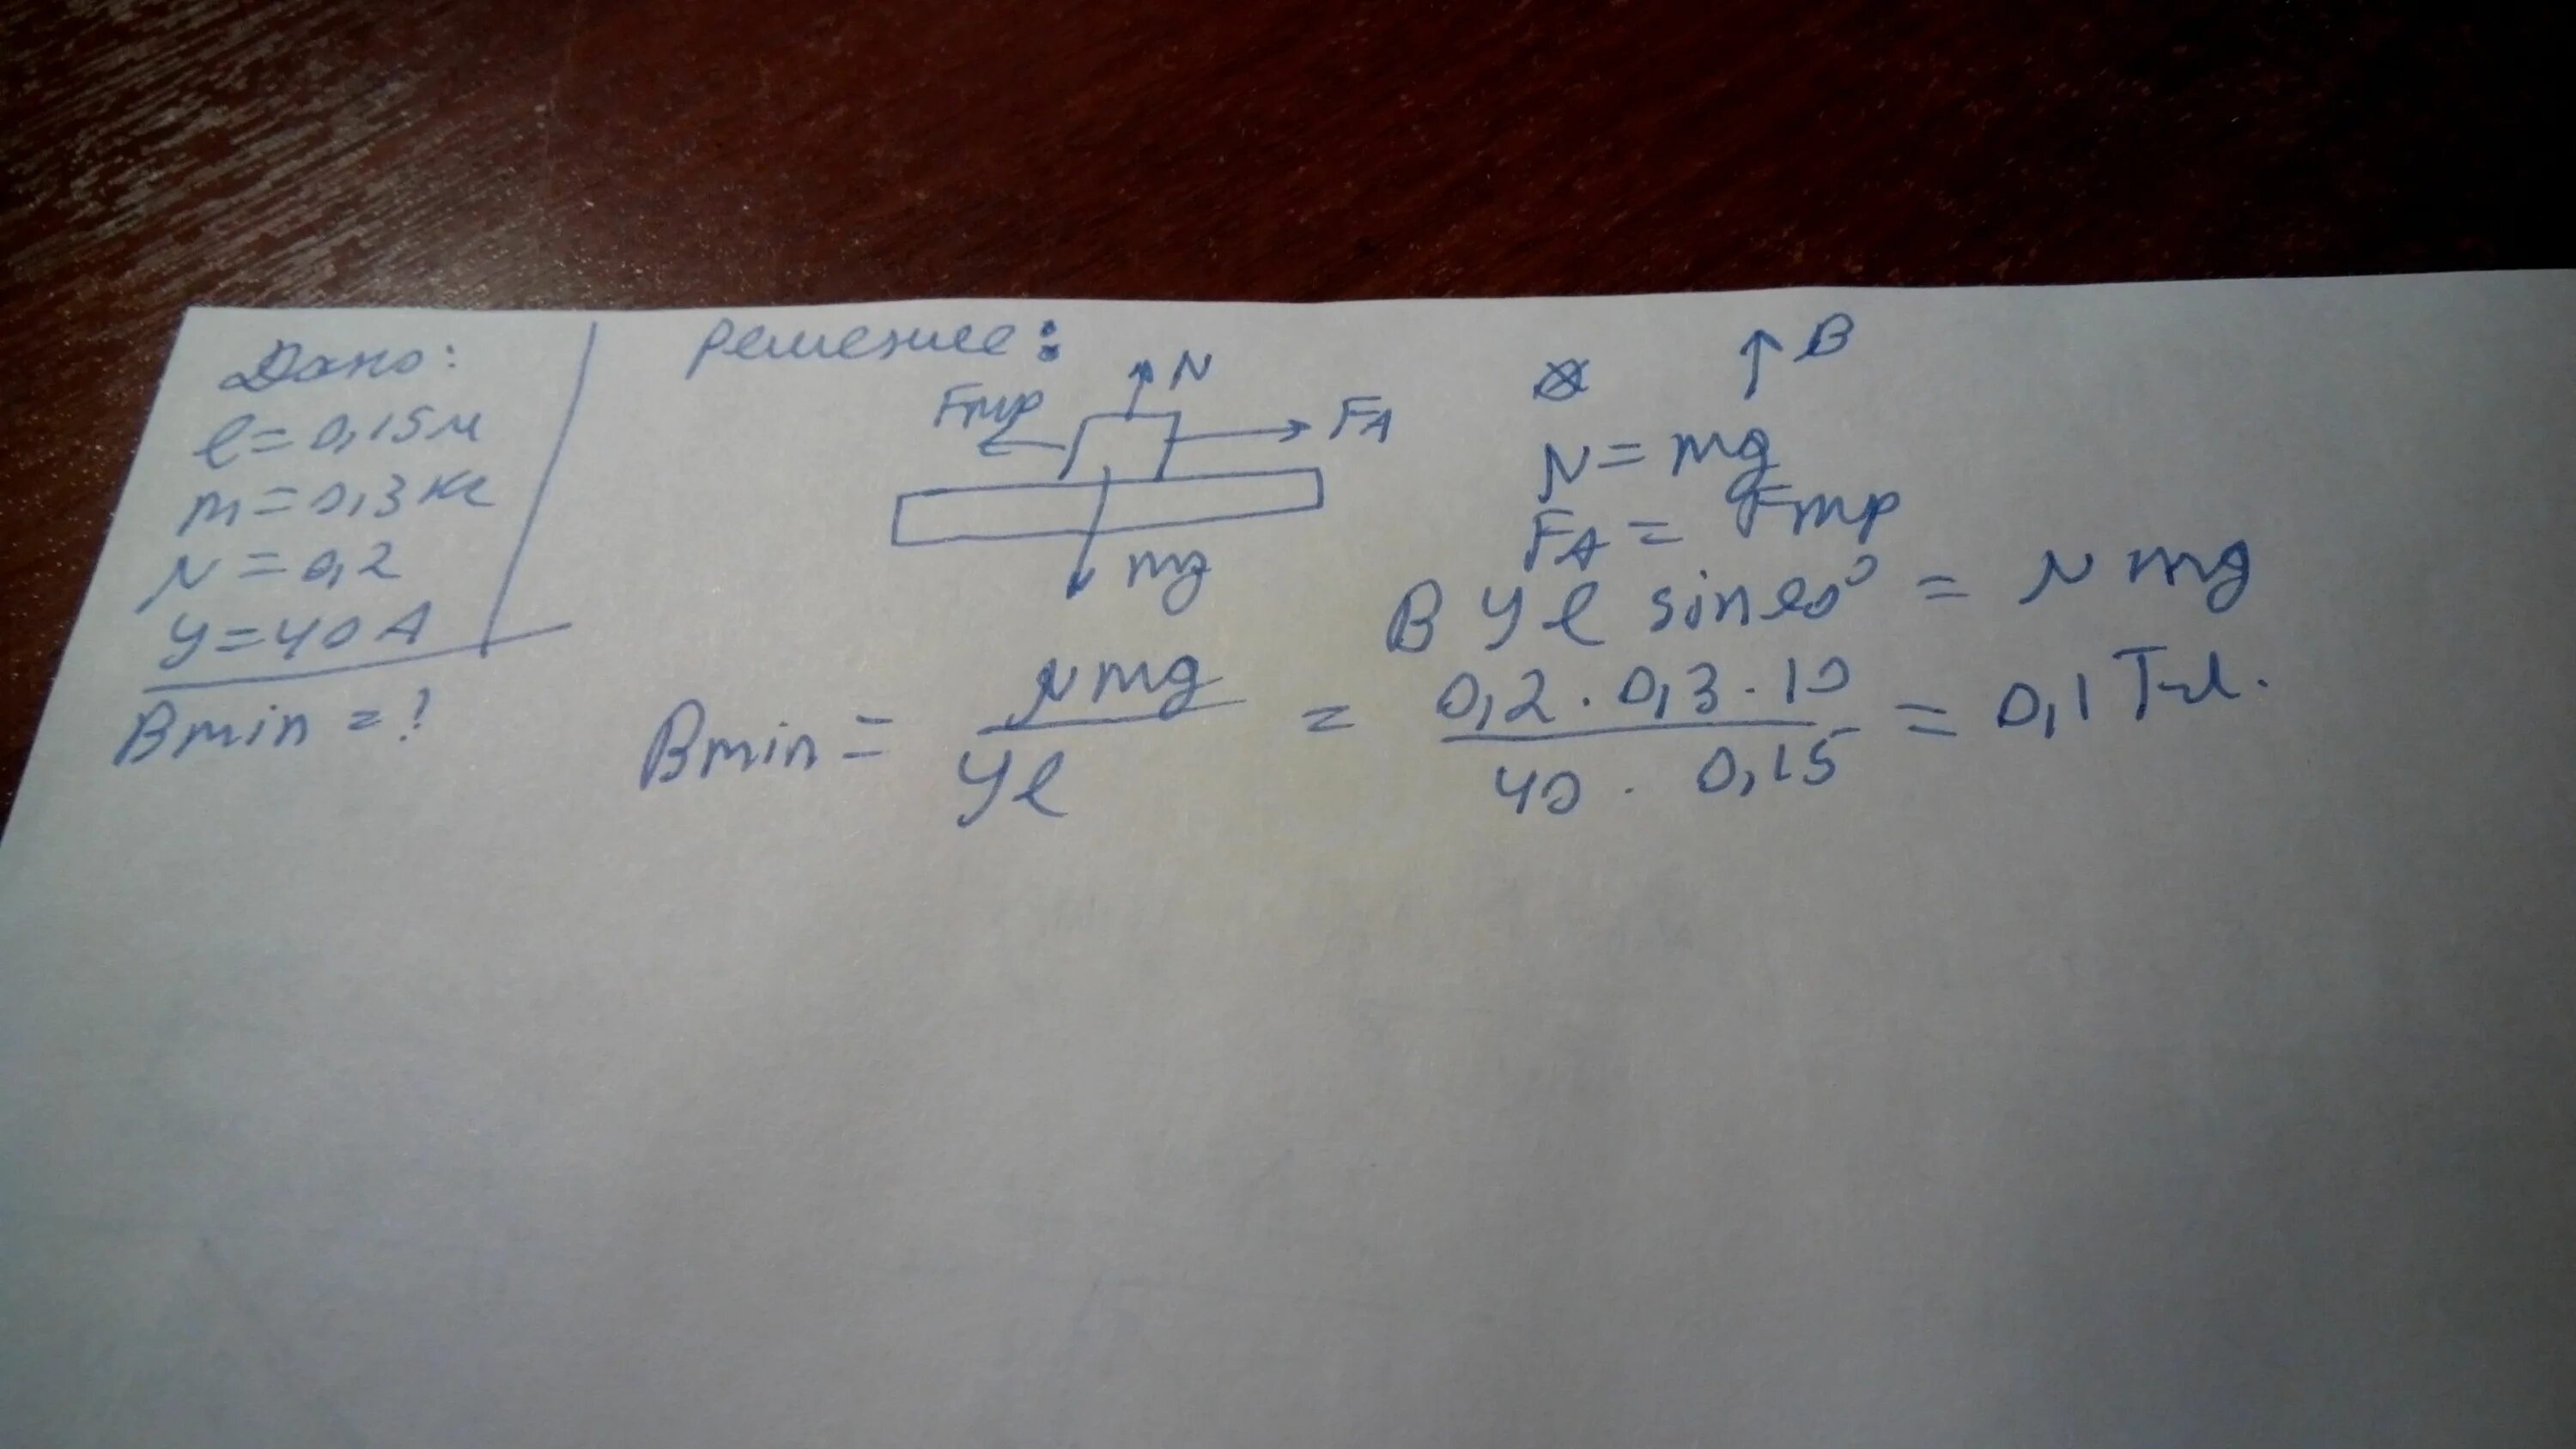 Дано:
l = 0,15 м
m = 0,3 кг
μ = 0,2
У = 40 А
Bmin = ?
Решение:
N
Fтр
FА
mg
⊗
↑ B
N = mg
FА = Fтр
B У l sin 90° = μ mg
Bmin = μmg / Уl = 0,2 · 0,3 · 10 / 40 · 0,15 = 0,1 Тл.